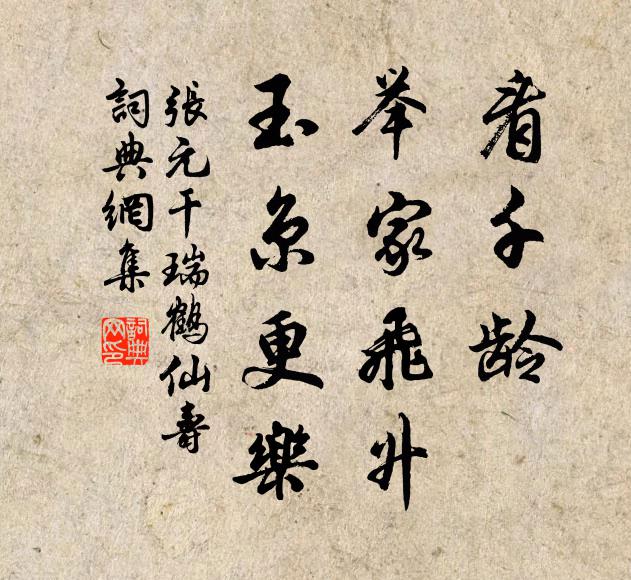 看千龄
举家飛升
玉京更樂
張元干瑞鶴仙壽
詞典網集
詞典網印